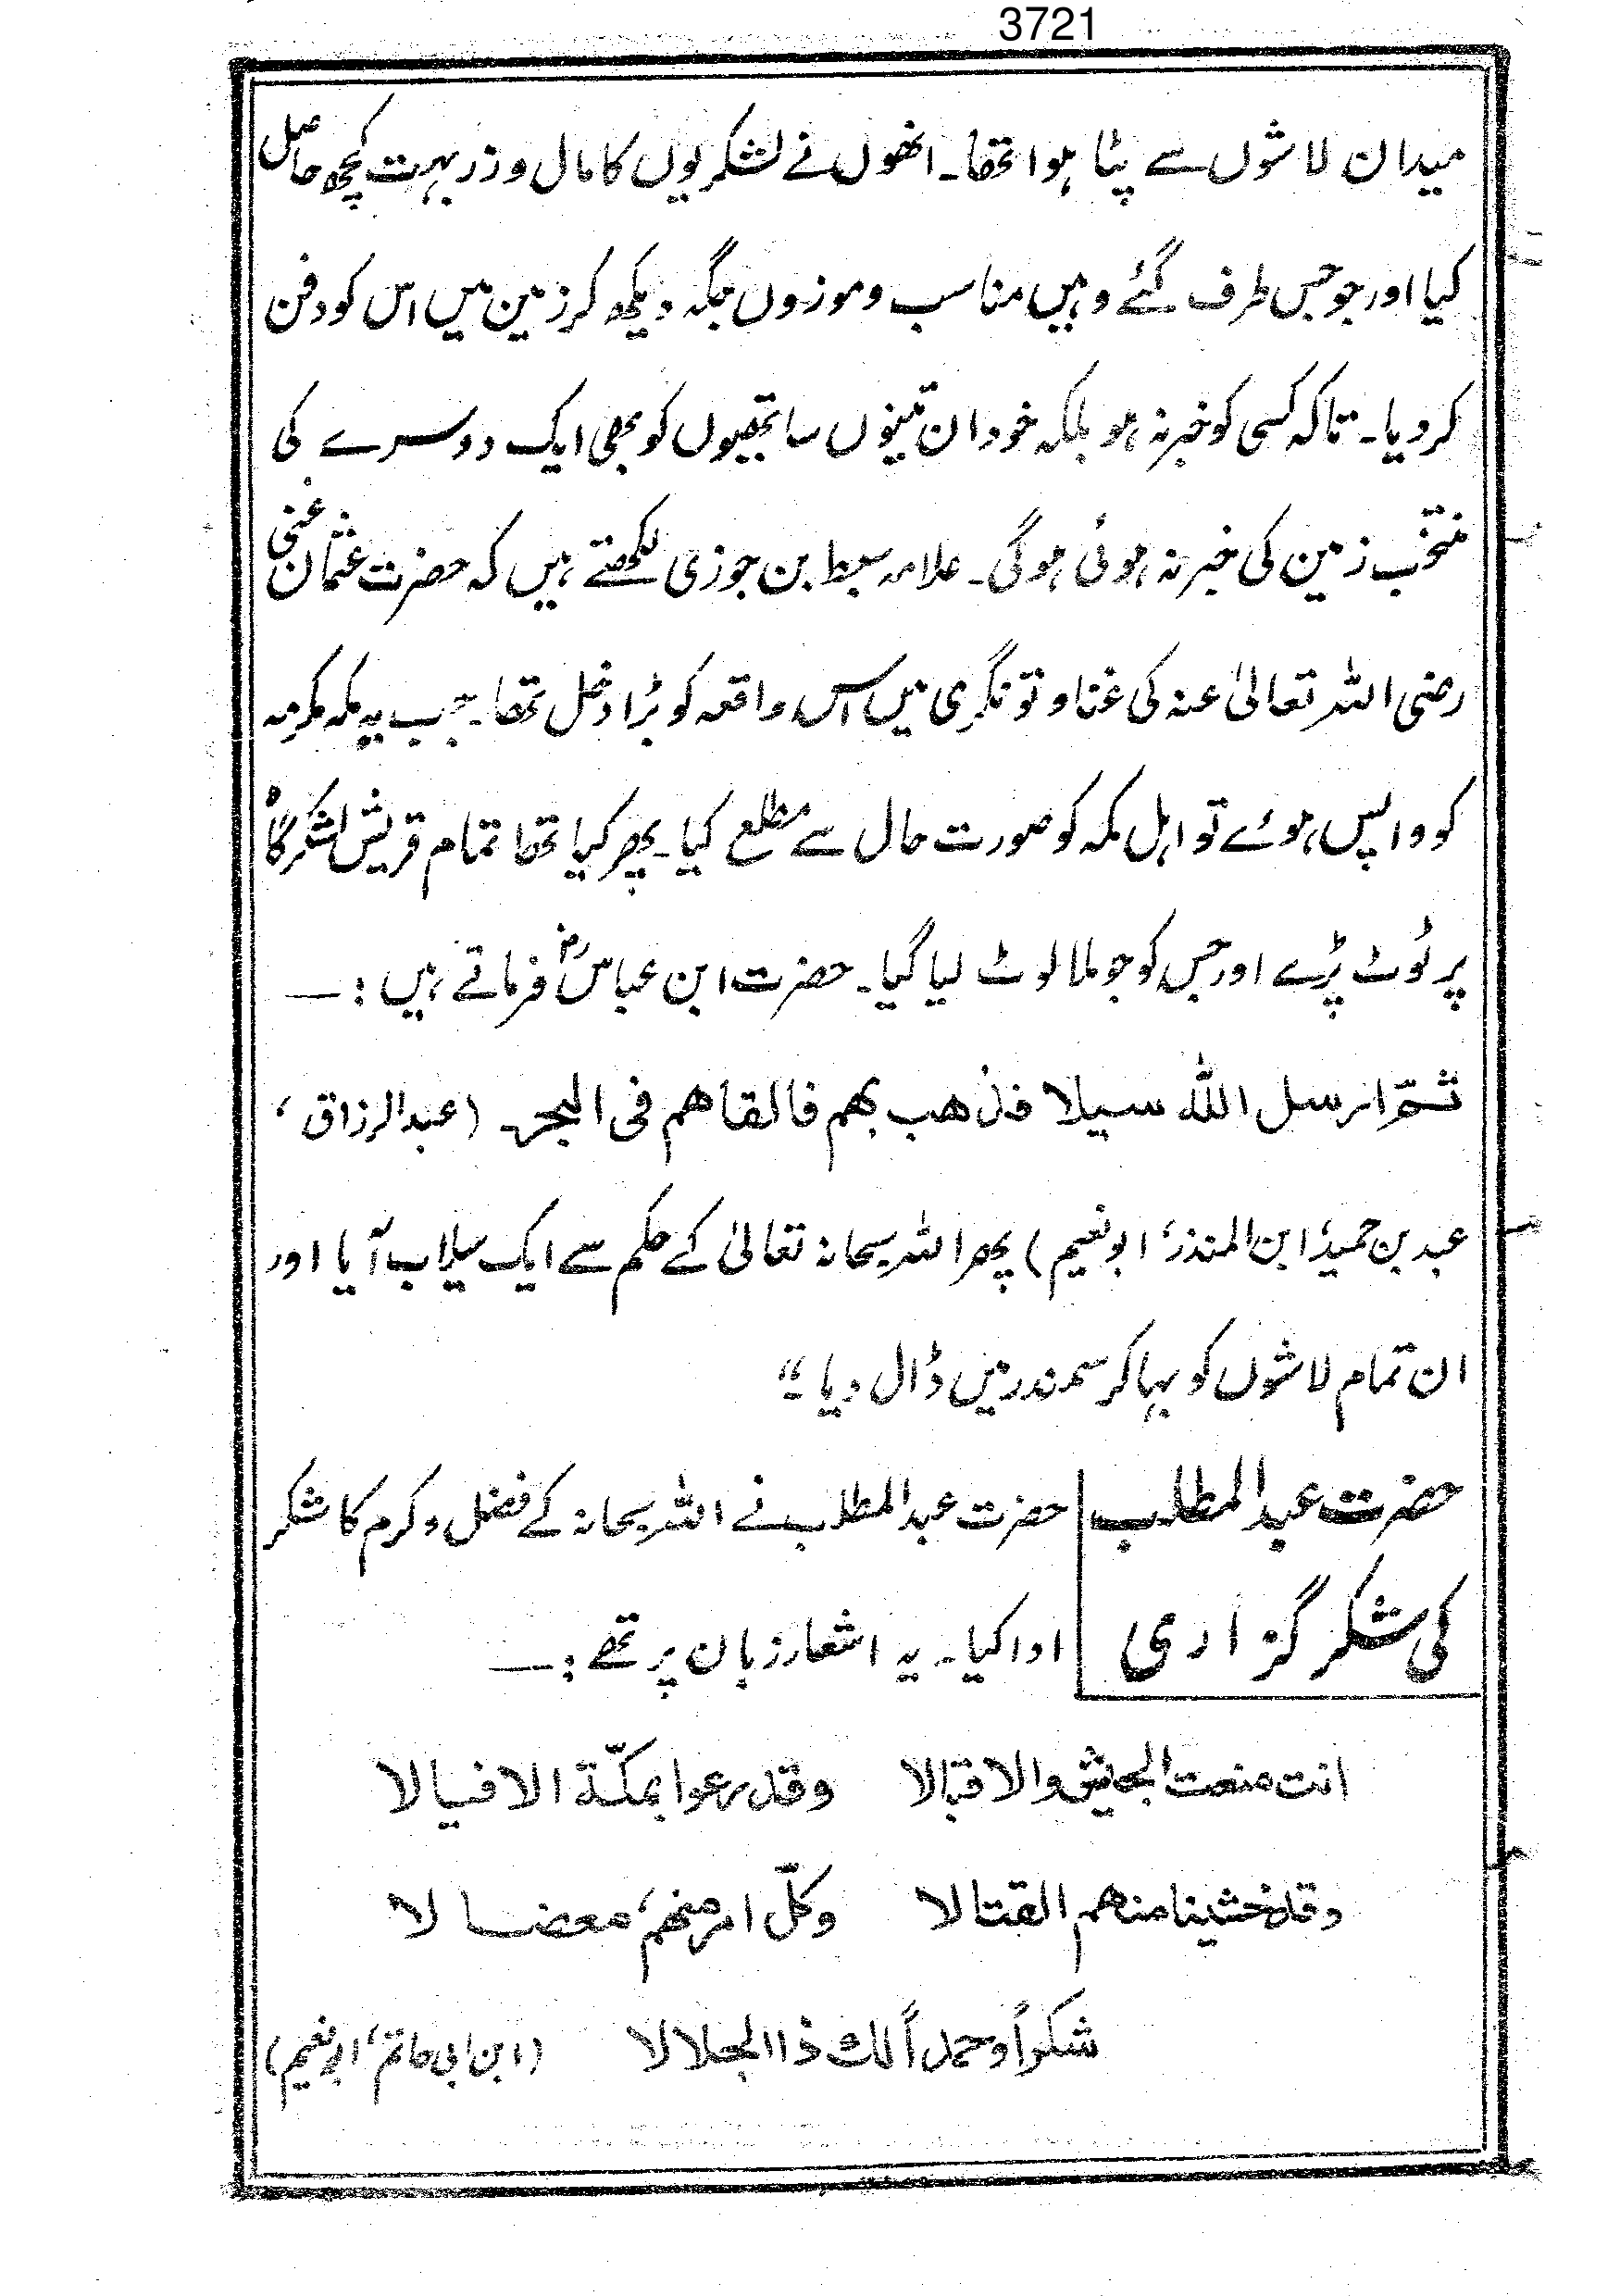 3721
میدان لاشوں سے پٹا ہوا تھا۔ انھوں نے لشکریوں کا مال و زر بہت کچھ حاصل
کیا اور جو جس طرف گئے وہیں مناسب و موزوں جگہ دیکھ کر زمین میں اس کو دفن
کر دیا۔ تاکہ کسی کو خبر نہ ہو بلکہ خود ان تینوں ساتھیوں کو بھی ایک دوسرے کی
منتخب زمین کی خبر نہ ہوئی ہوگی۔ علامہ سبط بن جوزی لکھتے ہیں کہ حضرت عثمان غنی
رضی اللہ تعالیٰ عنہ کی غنا و تونگری میں اس واقعہ کو بڑا دخل تھا۔ جب یہ مکہ مکرمہ
کو واپس ہوئے تو اہل مکہ کو صورت حال سے مطلع کیا۔ پھر کیا تھا تمام قریش لشکر گاہ
پر ٹوٹ پڑے اور جس کو جو ملا لوٹ لیا گیا۔ حضرت ابن عباسؓ فرماتے ہیں :—
ثمّ ارسل اللہ سیلا فذھب بھم فالقاھم فی البحر۔ (عبدالرزاق ،
عبد بن حمید، ابن المنذر، ابونعیم) پھر اللہ سبحانہ تعالیٰ کے حکم سے ایک سیلاب آیا اور
ان تمام لاشوں کو بہا کر سمندر میں ڈال دیا۔“
حضرت عبدالمطلب
کی شکر گزاری
حضرت عبدالمطلب نے اللہ سبحانہ کے فضل و کرم کا شکر
ادا کیا۔ یہ اشعار زبان پر تھے :—
انت منعت الجیش والاقبالا وقد رعوا بمکّة الافیالا
وقد خشینا منھم القتالا وکلّ امر منھم، معضالا
شکراً وحمداً لك ذا الجلالا (ابن ابی حاتم، ابونعیم)